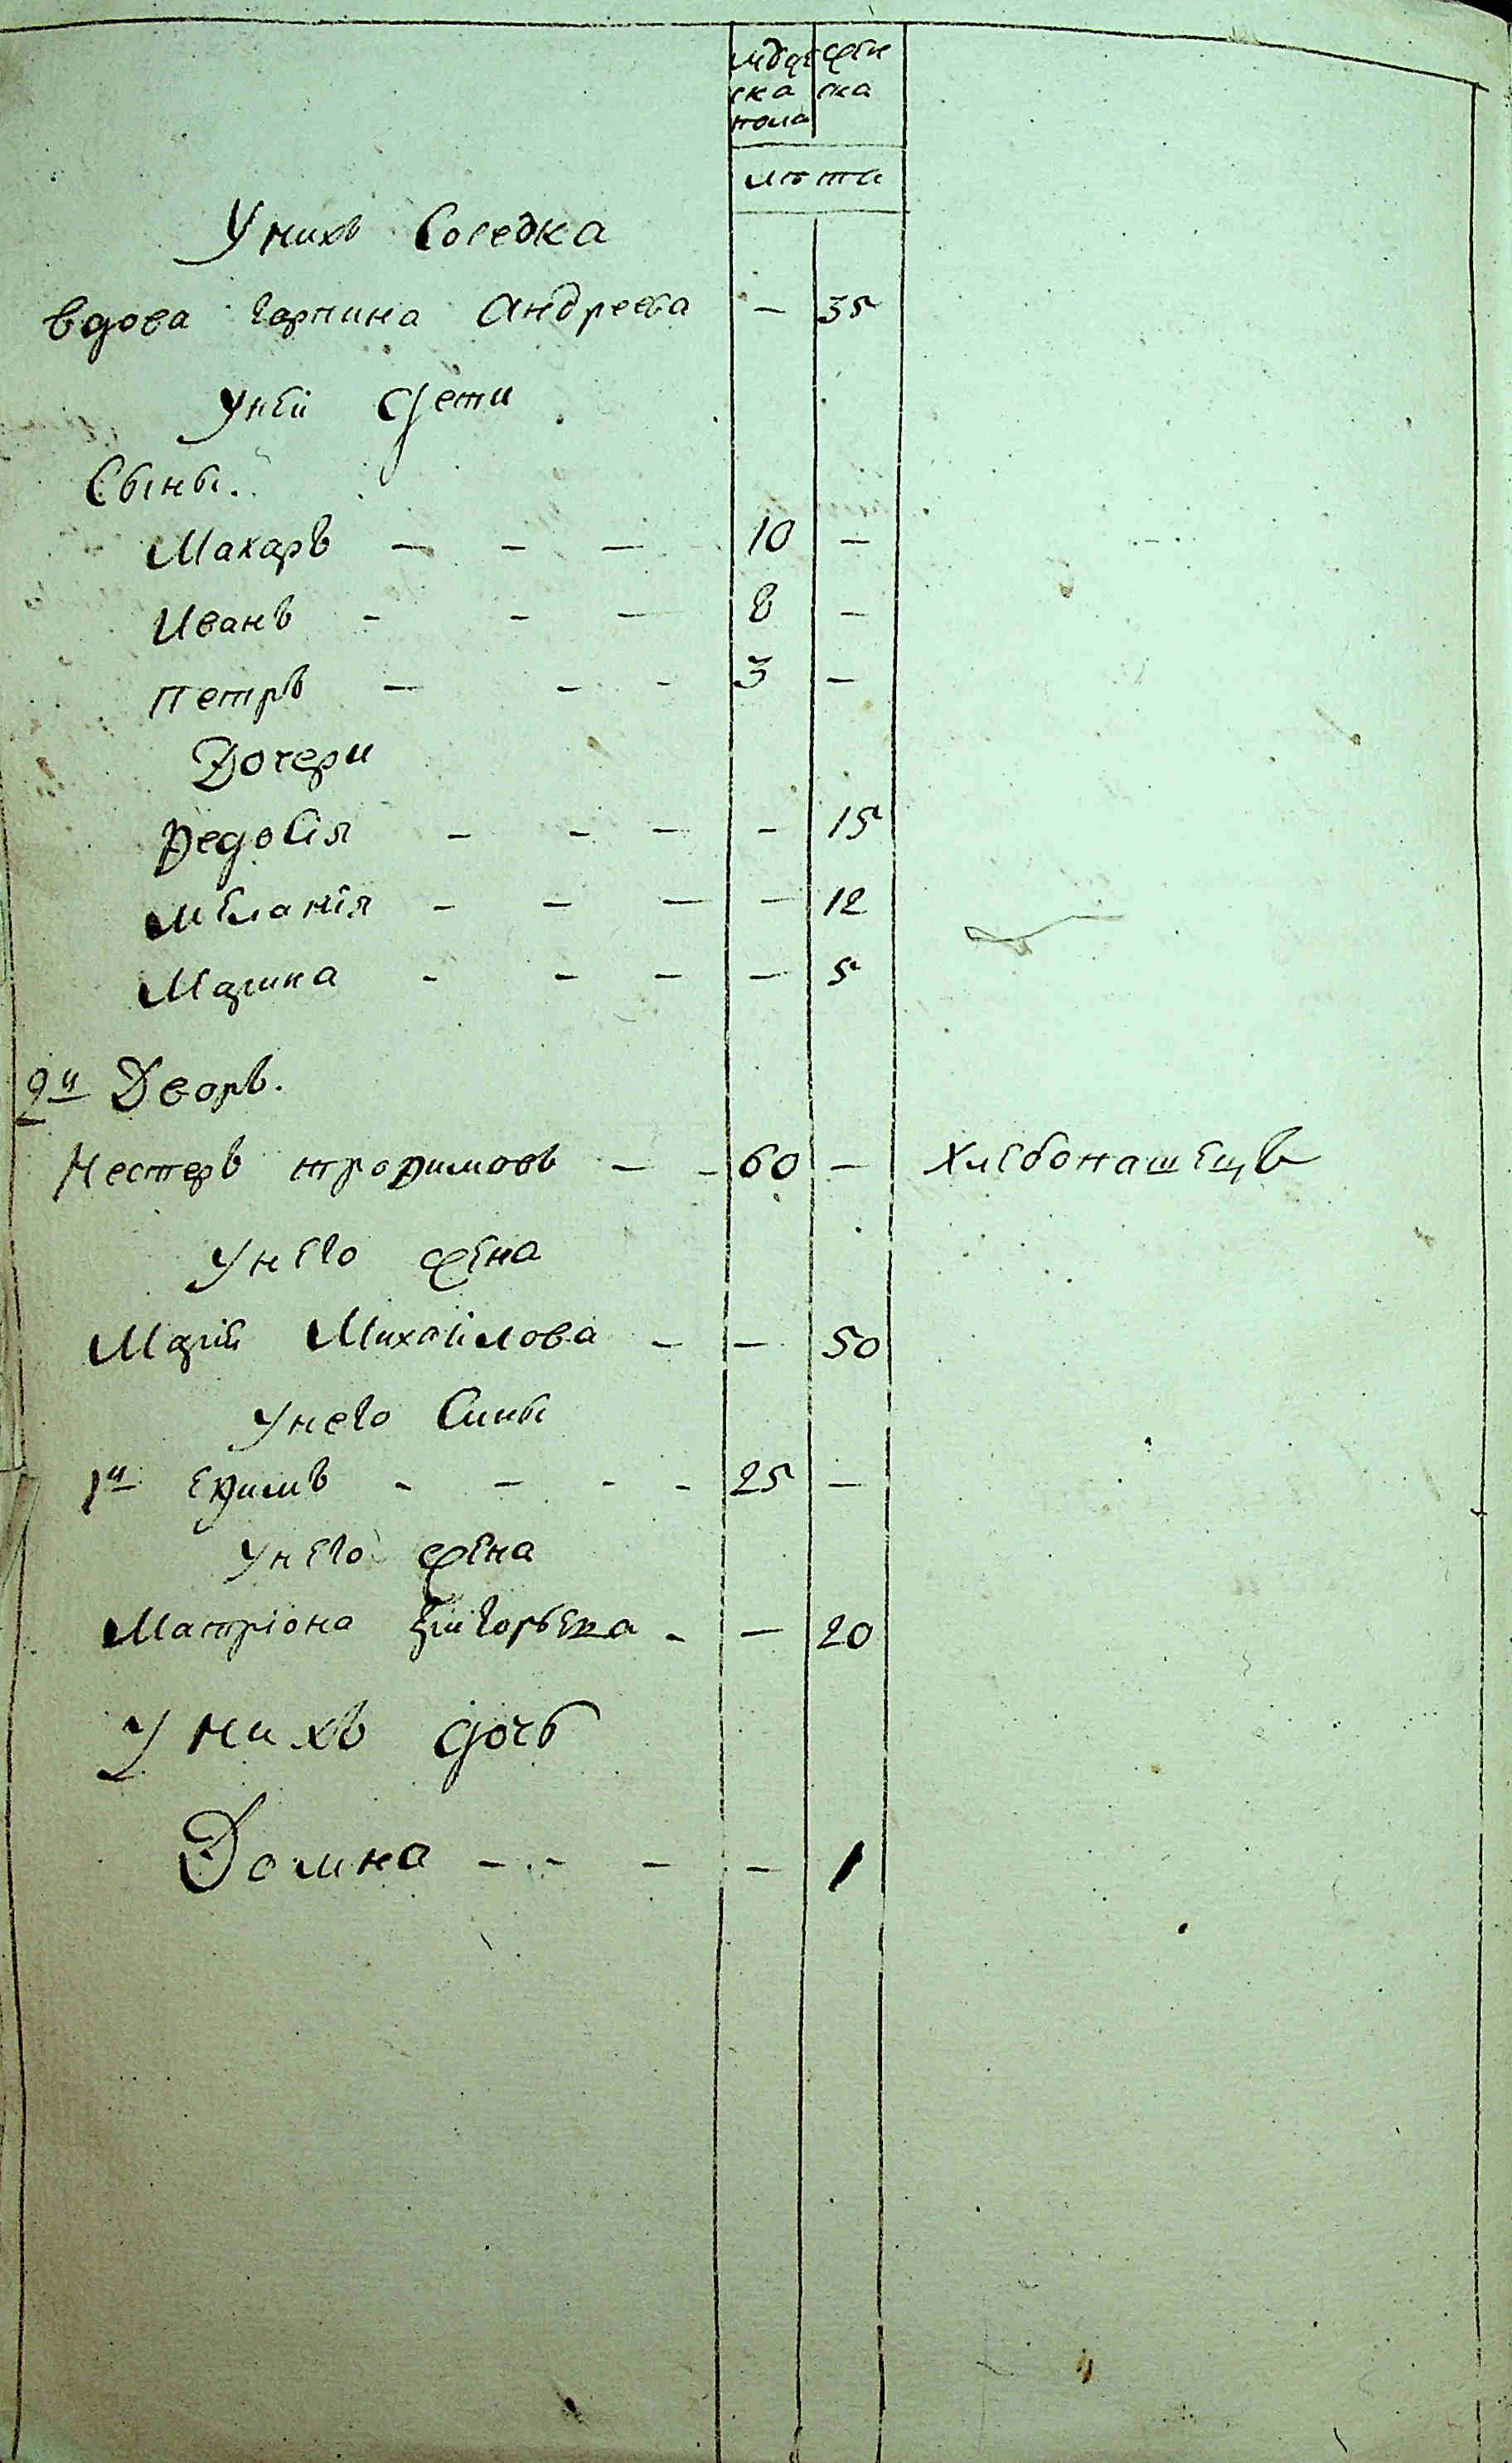 мдя жен
ска ска
пола
лѣта
У нихъ Соседка
вдова Гарпина Андреева — 35
У ней дети
Сыны.
Макаръ — — — 10 —
Иванъ — — — 8 —
петръ — — — 3 —
Дочери
Федосія — — — — 15
Меланія — — — — 12
Марина — — — — 5
2й Дворъ.
Нестеръ трофимовъ — — 60 — Хлебопашецъ
У него жена
Марія Михайлова — — 50
У него Сины
1й Ефимъ — — — — 25 —
У него жена
Матріона Григорьева — — 20
У нихъ дочь
Домна — — — — 1